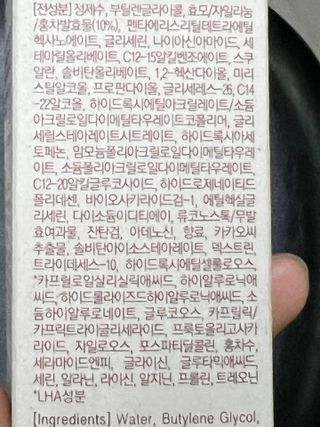 [전성분] 정제수, 부틸렌글라이콜, 효모/자일리눔
/홍차발효물(10%), 펜타에리스리틸테트라에틸
헥사노에이트, 글리세린, 나이아신아마이드, 세
테아릴올리베이트, C12-15알킬벤조에이트, 스쿠
알란, 솔비탄올리베이트, 1,2-헥산다이올, 미리
스틸알코올, 프로판다이올, 글리세레스-26, C14
-22알코올, 하이드록시에틸아크릴레이트/소듐
아크릴로일다이메틸타우레이트코폴리머, 글리
세릴스테아레이트시트레이트, 하이드록시아세
토페논, 암모늄폴리아크릴로일다이메틸타우레
이트, 소듐폴리아크릴로일다이메틸타우레이트,
C12-20알킬글루코사이드, 하이드로제네이티드
폴리데센, 바이오사카라이드검-1, 에틸헥실글
리세린, 다이소듐이디티에이, 류코노스톡/무발
효여과물, 잔탄검, 아데노신, 향료, 카카오씨
추출물, 솔비탄아이소스테아레이트, 덱스트린,
트라이데세스-10, 하이드록시에틸셀룰로오스,
*카프릴로일살리실릭애씨드, 하이알루로닉애
씨드, 하이드롤라이즈드하이알루로닉애씨드, 소
듐하이알루로네이트, 글루코오스, 카프릴릭/
카프릭트라이글리세라이드, 프룩토올리고사카
라이드, 자일로오스, 포스파티딜콜린, 홍차수,
세라마이드엔피, 글라이신, 글루타믹애씨드,
세린, 알라닌, 라이신, 알지닌, 프롤린, 트레오닌
*LHA성분
[Ingredients] Water, Butylene Glycol,